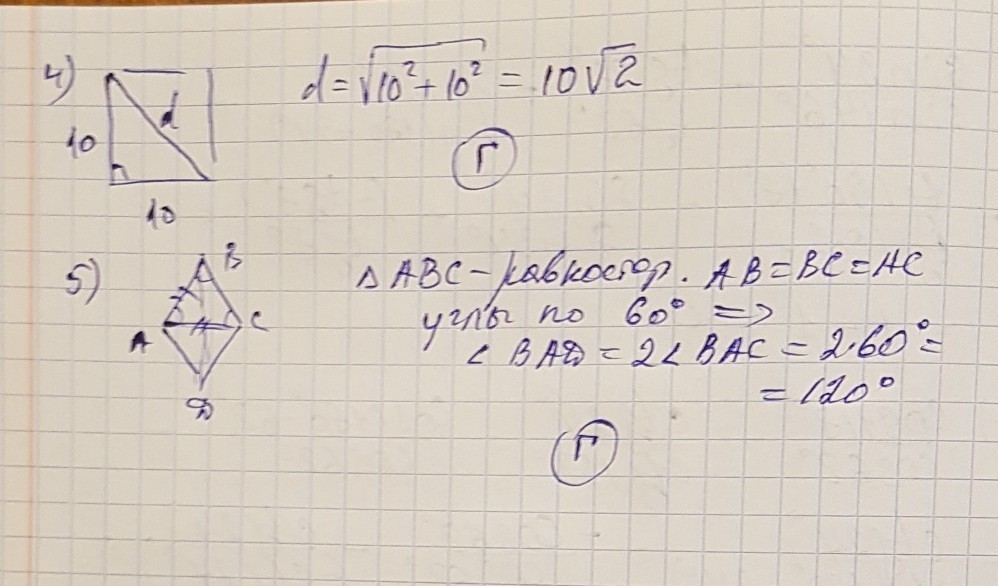 4)
d = √10² + 10² = 10√2
d
10
10
Г
5)
B
A
C
D
Δ ABC - равностор. AB = BC = AC
углы по 60° =>
∠ BAD = 2∠ BAC = 2·60° =
= 120°
Г